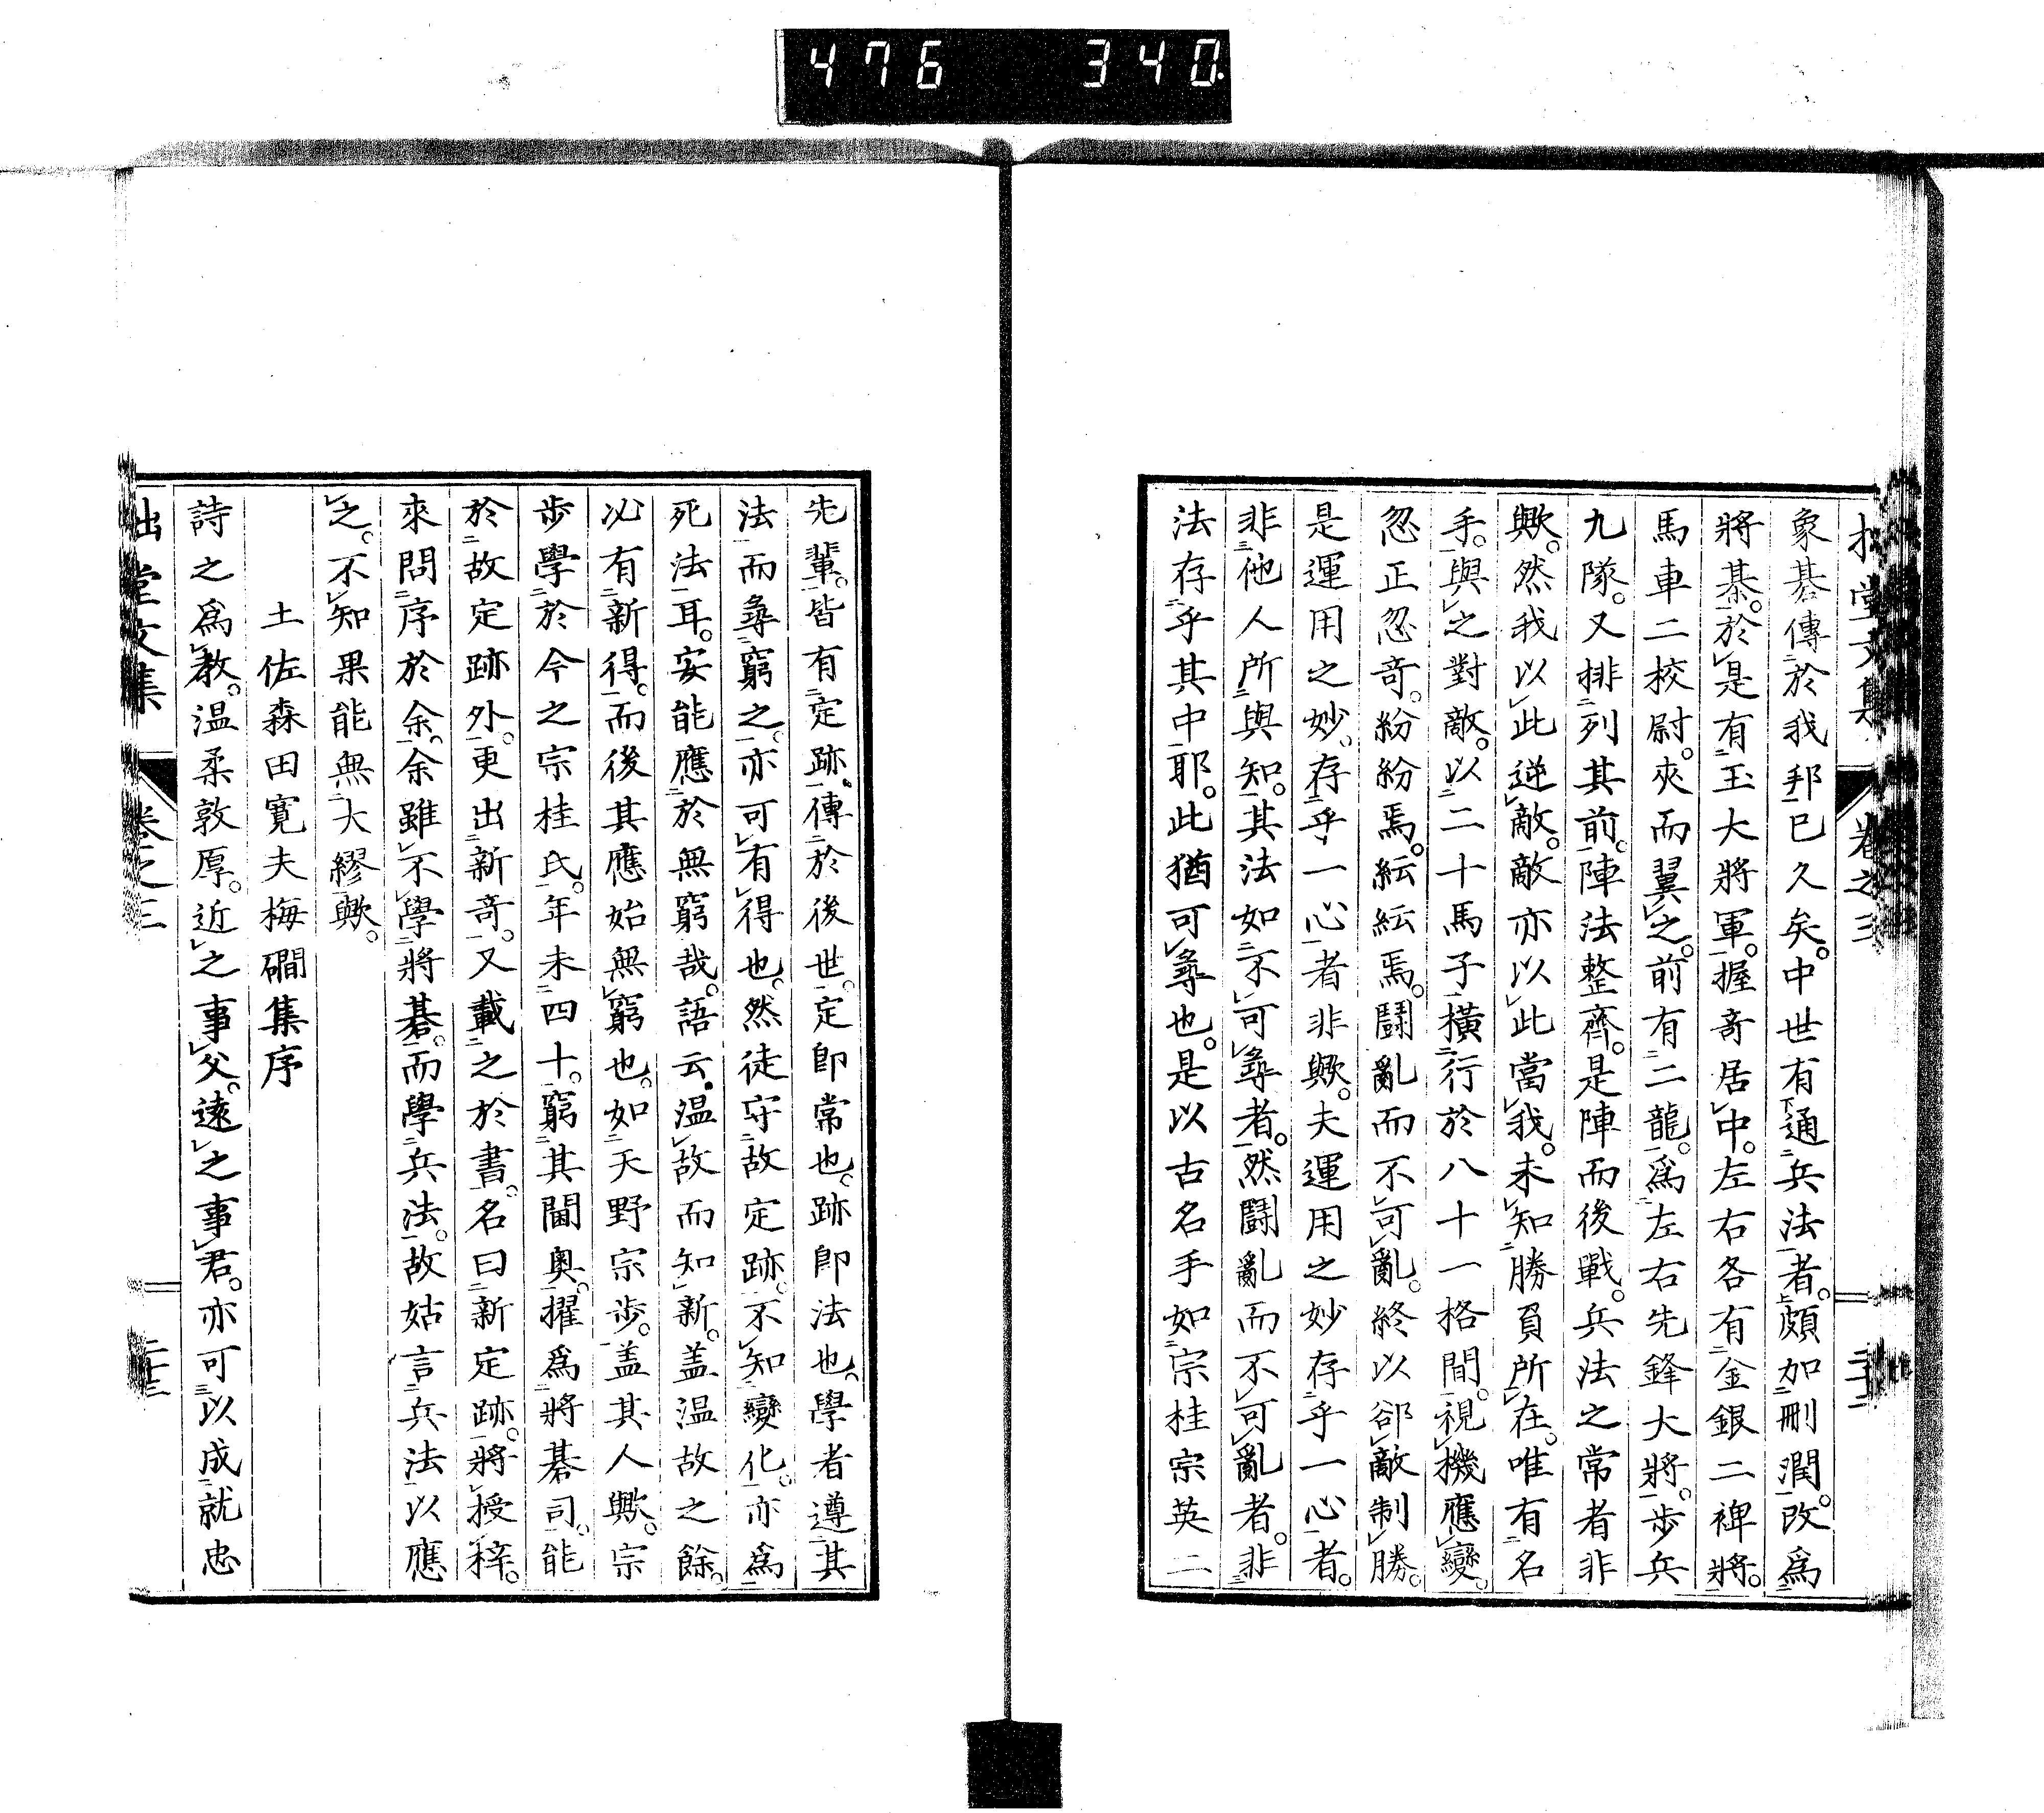 476 340
拙堂文集 卷之三 二十二
象棊傳於我邦已久矣。中世有通兵法者。頗加刪潤。改爲
將棊。於是有玉大將軍。握奇居中。左右各有金銀二裨將。
馬車二校尉。夾而翼之。前有二龍。爲左右先鋒大將。步兵
九隊。又排列其前。陣法整齊。是陣而後戰。兵法之常者非
歟。然我以此逆敵。敵亦以此當我。未知勝負所在。唯有名
手。與之對敵。以二十馬子橫行於八十一格間。視機應變。
忽正忽奇。紛紛焉。紜紜焉。鬪亂而不可亂。終以郤敵制勝。
是運用之妙。存乎一心者非歟。夫運用之妙存乎一心者。
非他人所與知。其法如不可尋者。然鬪亂而不可亂者。非
法存乎其中耶。此猶可尋也。是以古名手如宗桂宗英二
先輩。皆有定跡。傳於後世。定卽常也。跡卽法也。學者遵其
法而尋窮之。亦可有得也。然徒守故定跡。不知變化。亦爲
死法耳。安能應於無窮哉。語云。溫故而知新。盖溫故之餘。
必有新得。而後其應始無窮也。如天野宗步。盖其人歟。宗
步學於今之宗桂氏。年未四十。窮其閫奧。擢爲將棊司。能
於故定跡外。更出新奇。又載之於書。名曰新定跡。將授梓。
來問序於余。余雖不學將棊。而學兵法。故姑言兵法以應
之。不知果能無大繆歟。
土佐森田寬夫梅磵集序
詩之爲教。溫柔敦厚。近之事父。遠之事君。亦可以成就忠
拙堂文集 卷之三 二十三